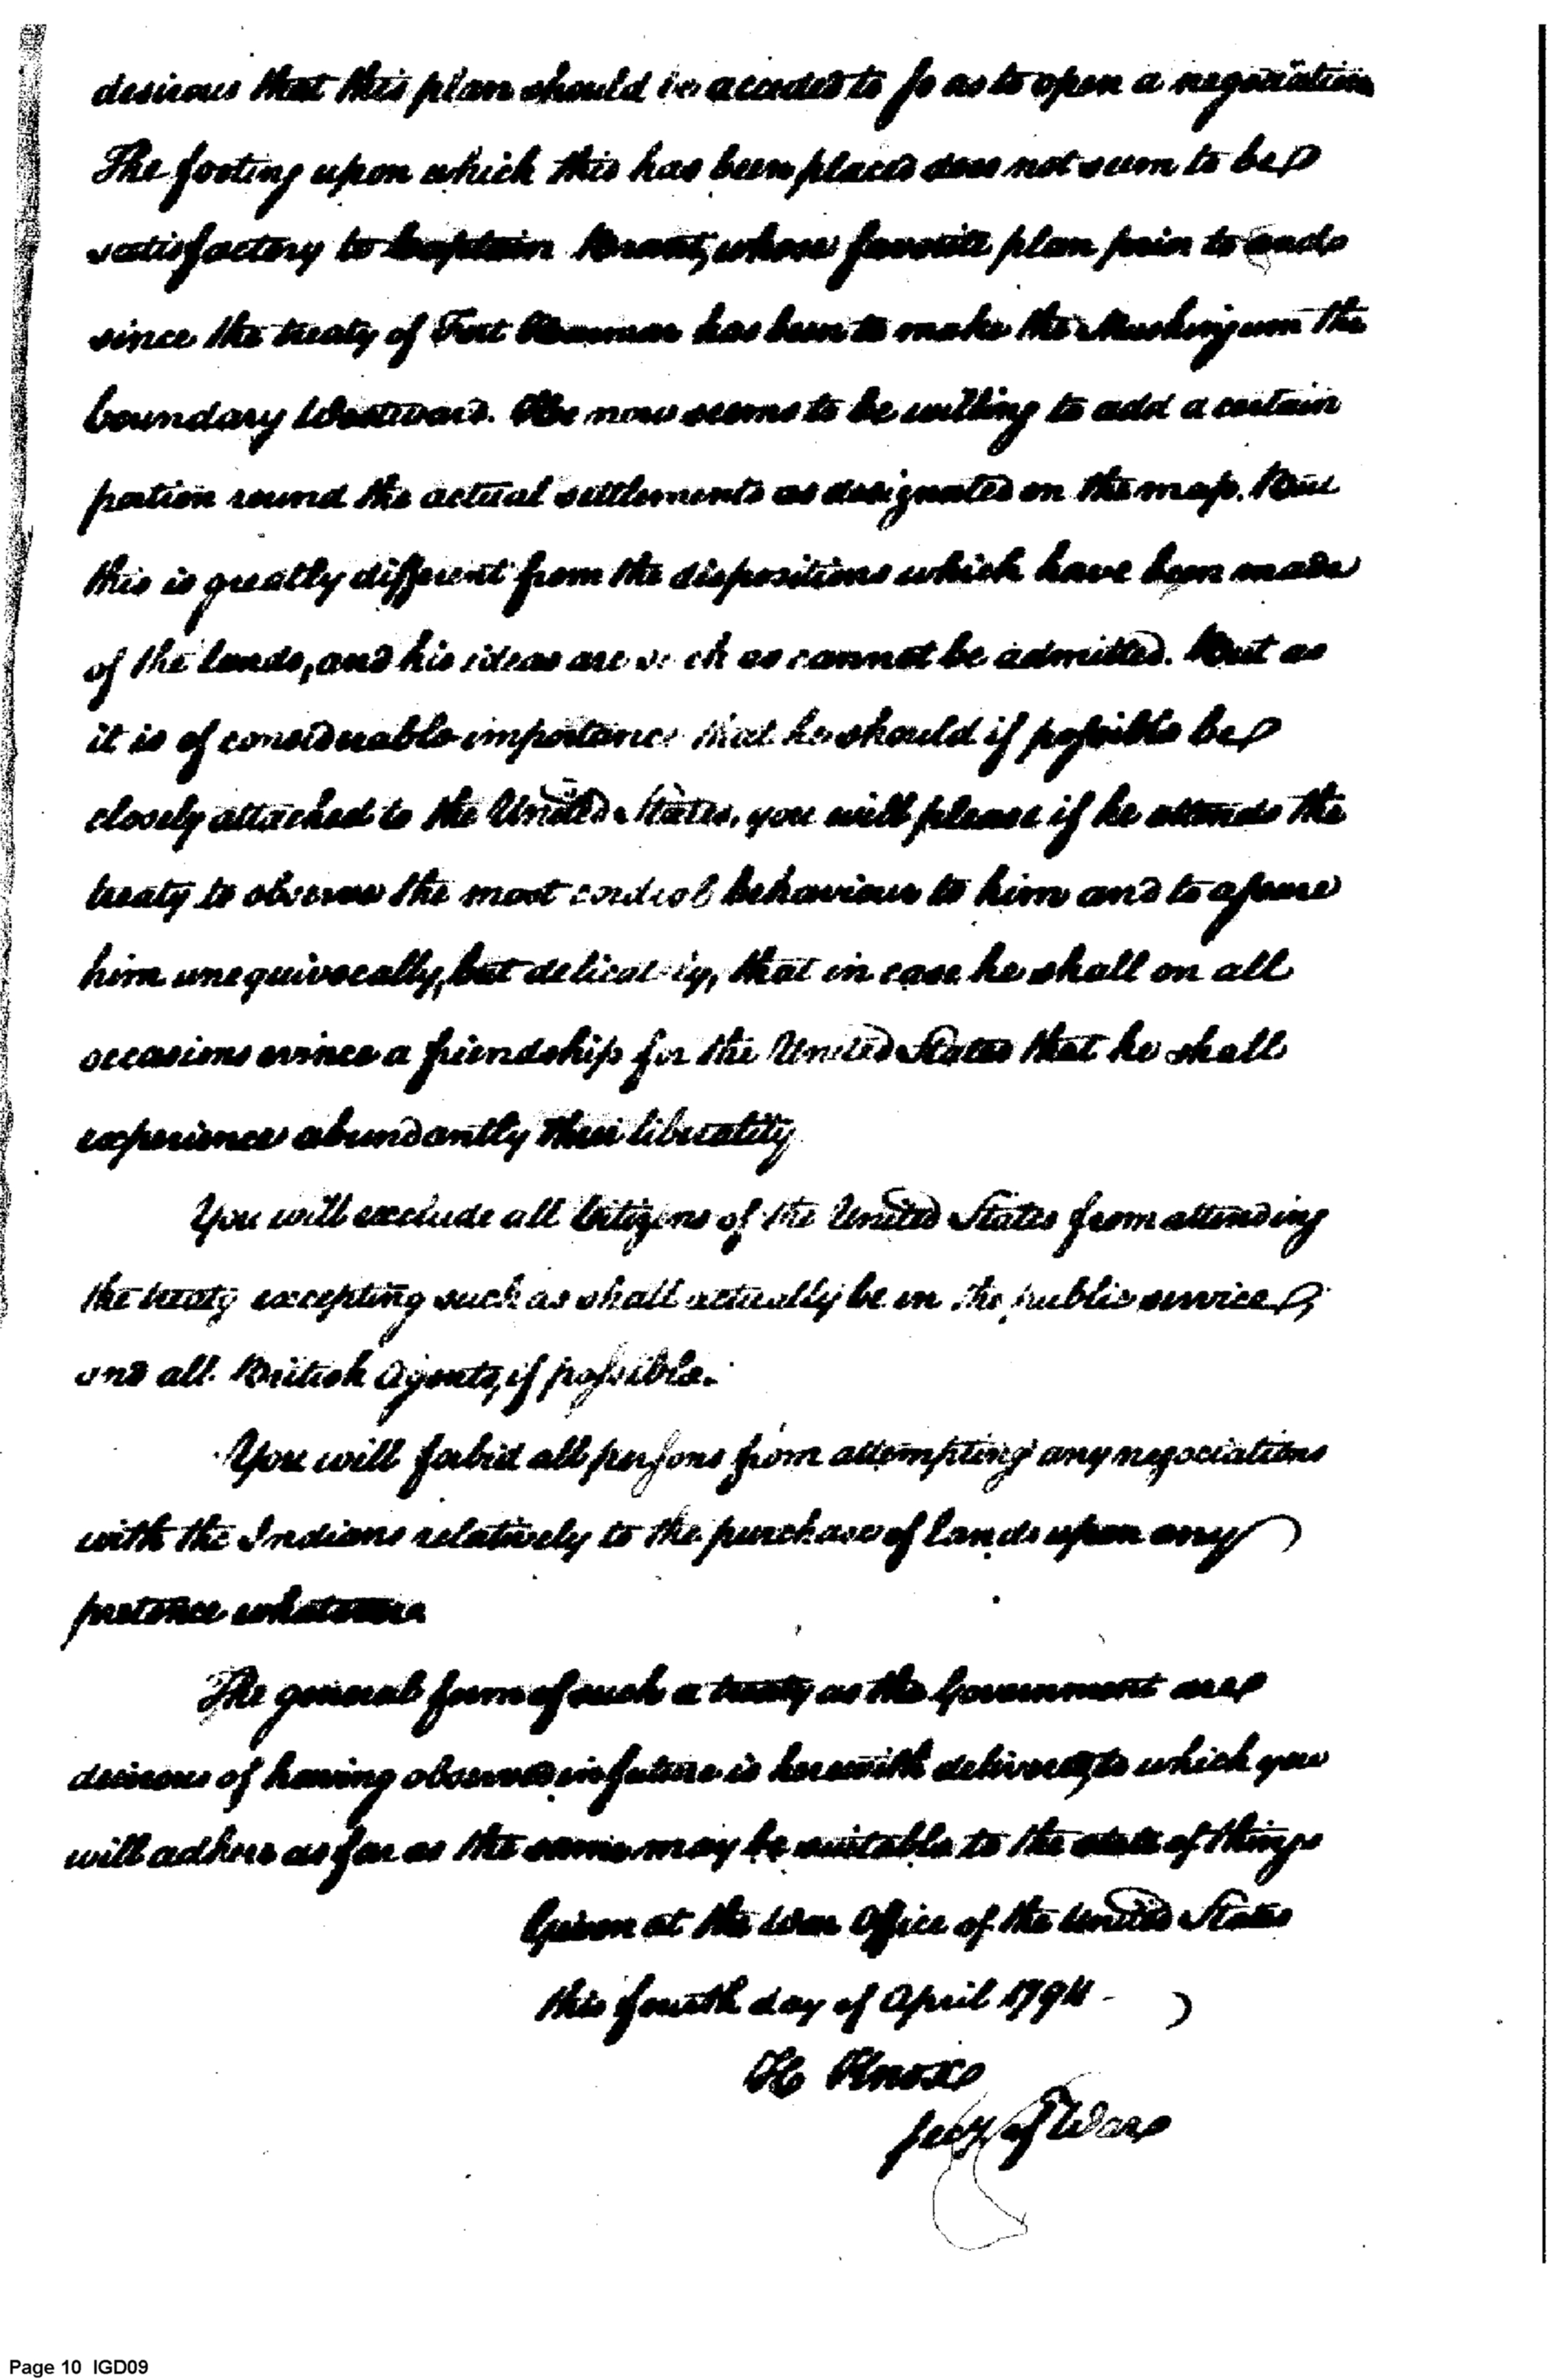 desirous that this plan should be acceded to so as to open a negociation
The footing upon which this has been placed does not seem to be
satisfactory to Captain Brant, whose favorite plan prior to and
since the treaty of Fort Harmar has been to make the Muskingum the
boundary Westward. He now seems to be willing to add a certain
portion round the actual settlements as designated on the map. But
this is greatly different from the dispositions which have been made
of the lands, and his ideas are such as cannot be admitted. But as
it is of considerable importance that he should if possible be
closely attached to the United States, you will please if he attends the
treaty to observe the most cordial behaviour to him and to assure
him unequivocally, but delicately, that in case he shall on all
occasions evince a friendship for the United States that he shall
experience abundantly their liberality
You will exclude all Citizens of the United States from attending
the treaty excepting such as shall actually be in the public service,
and all British Agents, if possible.
You will forbid all persons from attempting any negociations
with the Indians relatively to the purchase of lands upon any
pretence whatever
The general form of such a treaty as the Government are
desirous of having observed in future is herewith delivered, to which you
will adhere as far as the same may be suitable to the state of things
Given at the War Office of the United States
this fourth day of April 1794
H Knox
Secy of War
Page 10 IGD09